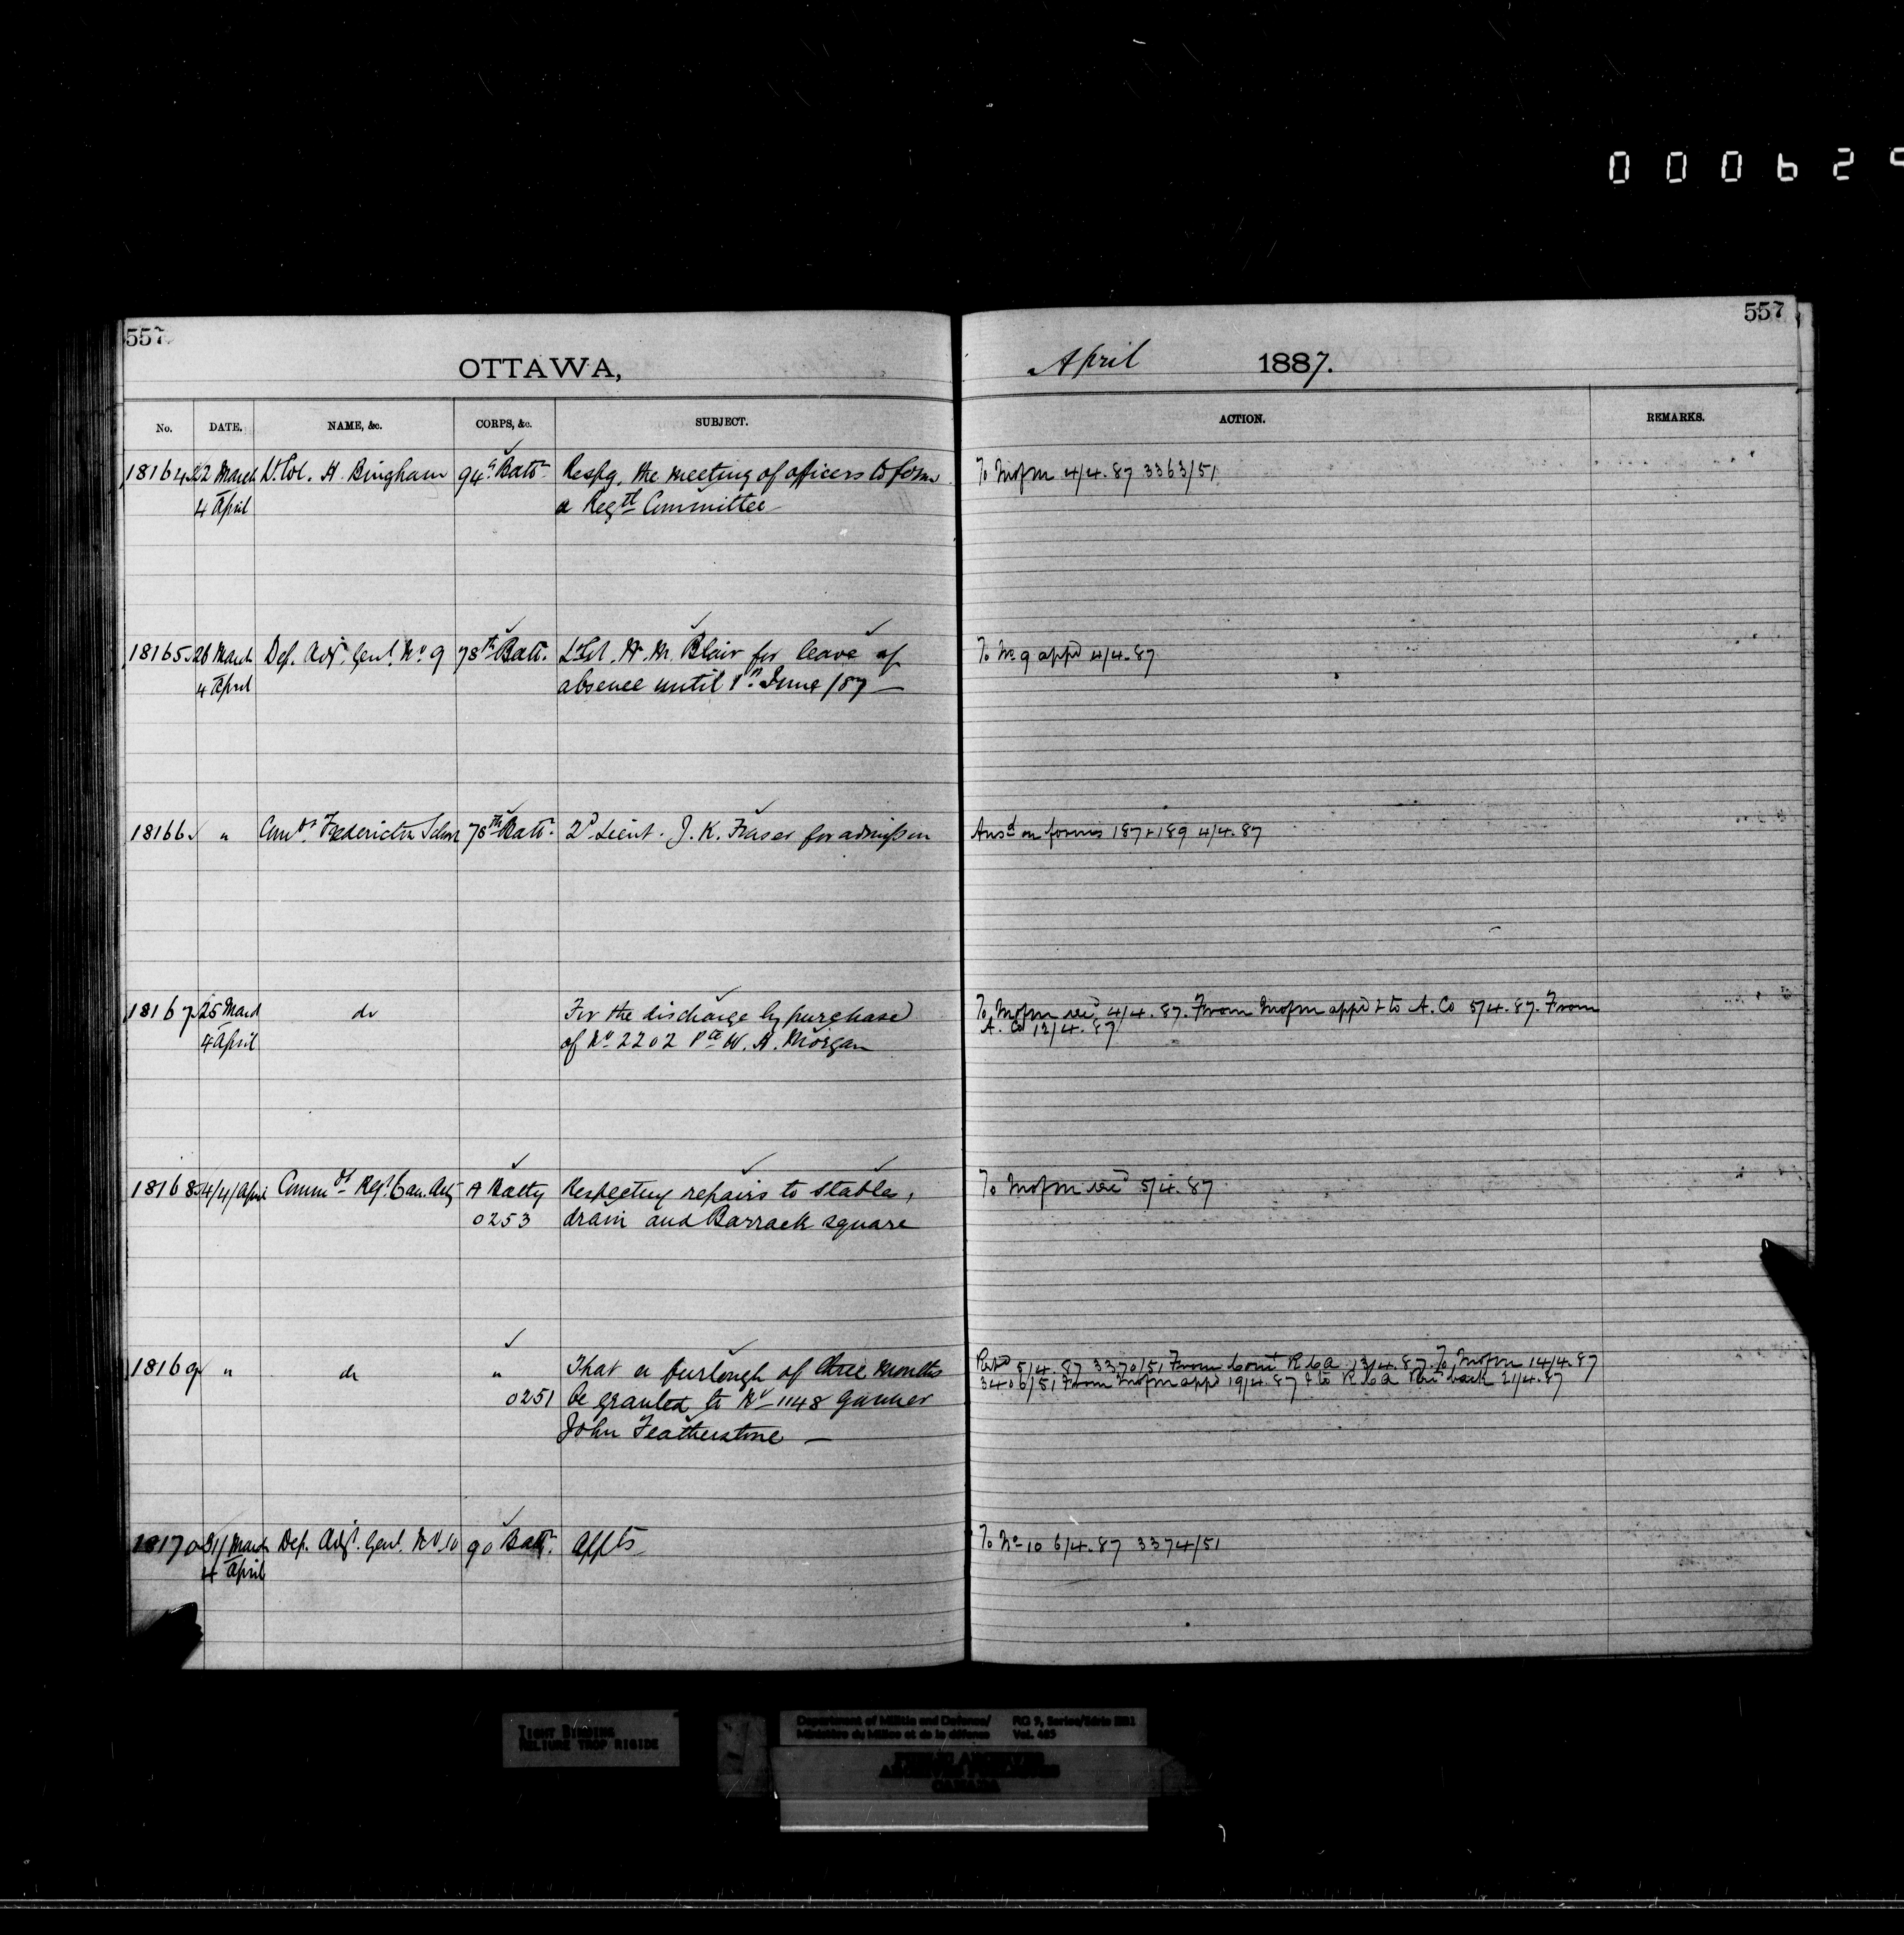 000629
557
557
OTTAWA,
April 1887.
No. DATE. NAME, &c. CORPS, &c. SUBJECT. ACTION. REMARKS.
18164 22 March Lt. Col. H. Bingham 94th Battn Respg. the meeting of officers to form To Mofm 4/4.87 3363/51
4 April a Regtl Committee
18165 26 March Dep. Adjt. Genl. No 9 78th Batt. Lt Col. W. M. Blair for leave of To No 9 appd 4/4.87
4 April absence until 1st June/87 —
18166 " Comdt Fredericton School 78th Battn. 2d Lieut. J. K. Fraser for admission Ansd on forms 187+189 4/4.87
18167 25 March do For the discharge by purchase To Mofm recd 4/4.87. From Mofm appd & to A. Co 5/4.87. From
4 April of No 2202 Pte W. H. Morgan A. Co 12/4.87
18168 4/4/April Commdt Regt Can. Arty A Batty Respecting repairs to stables, To Mofm recd 5/4.87
0253 drain and Barrack square
18169 " do " That a furlough of three months Retd 5/4.87 3370/51 From Comt R C A 13/4.87. To Mofm 14/4.87
0251 be granted to No 1148 Gunner 3406/51 From Mofm appd 19/4.87 & to R C A back 21/4.87
John Featherstone —
18170 31/ March Dep. Adjt. Genl. No 10 90 Batt. Appts To No 10 6/4.87 3374/51
4 April
TIGHT BINDING
RELIURE TROP RIGIDE
Department of Militia and Defence/ RG 9, Series/Série IIB1
Ministère du Milice et de la défense Vol. 485
PUBLIC ARCHIVES
ARCHIVES PUBLIQUES
CANADA